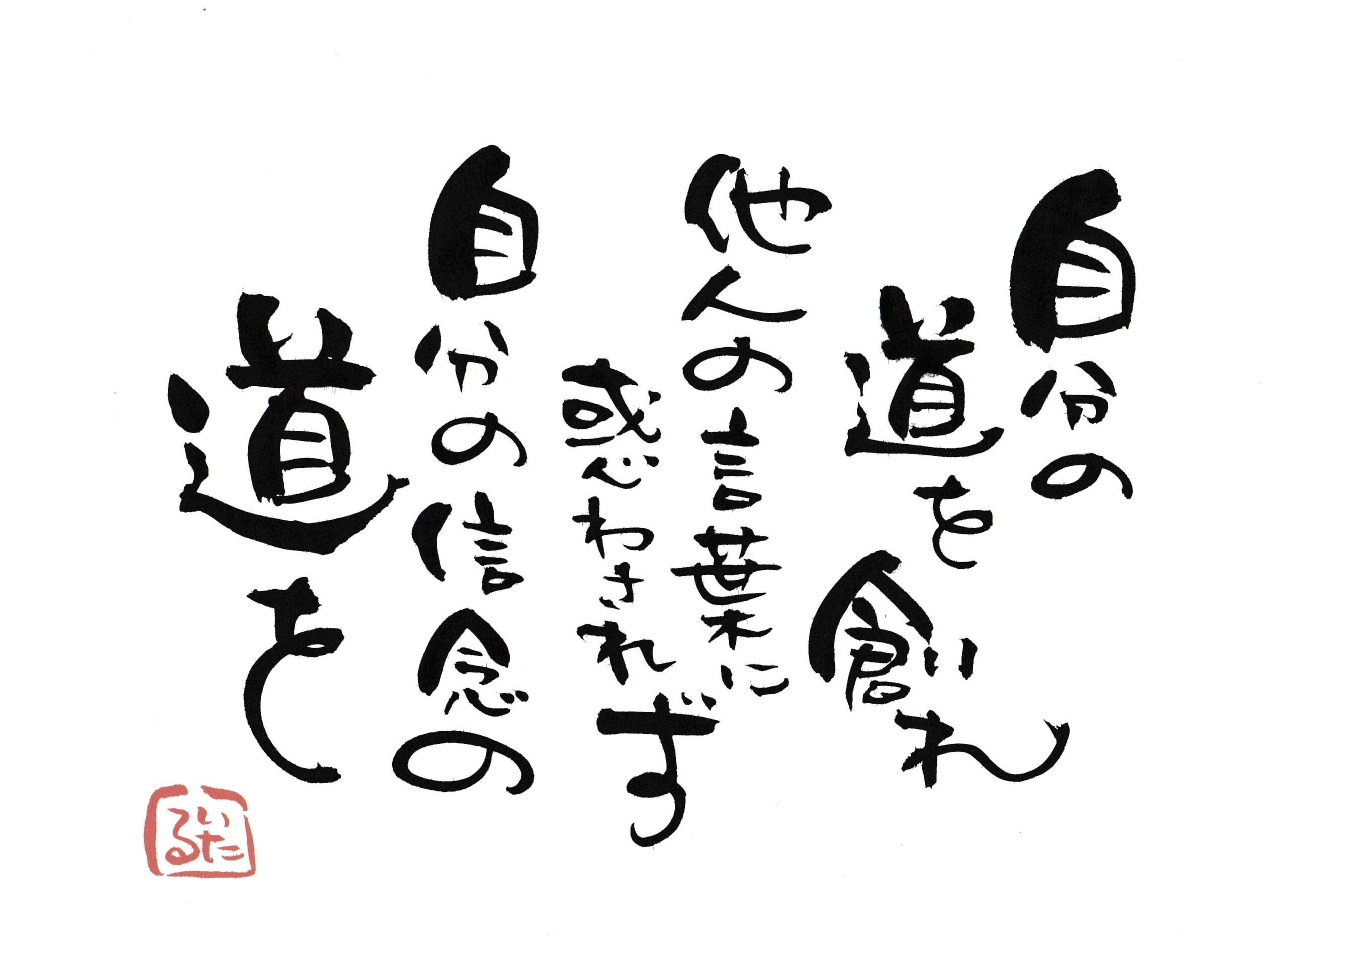 自分の
道を
創れ
他人の言葉に
惑わされず
自分の信念の
道を
いたる